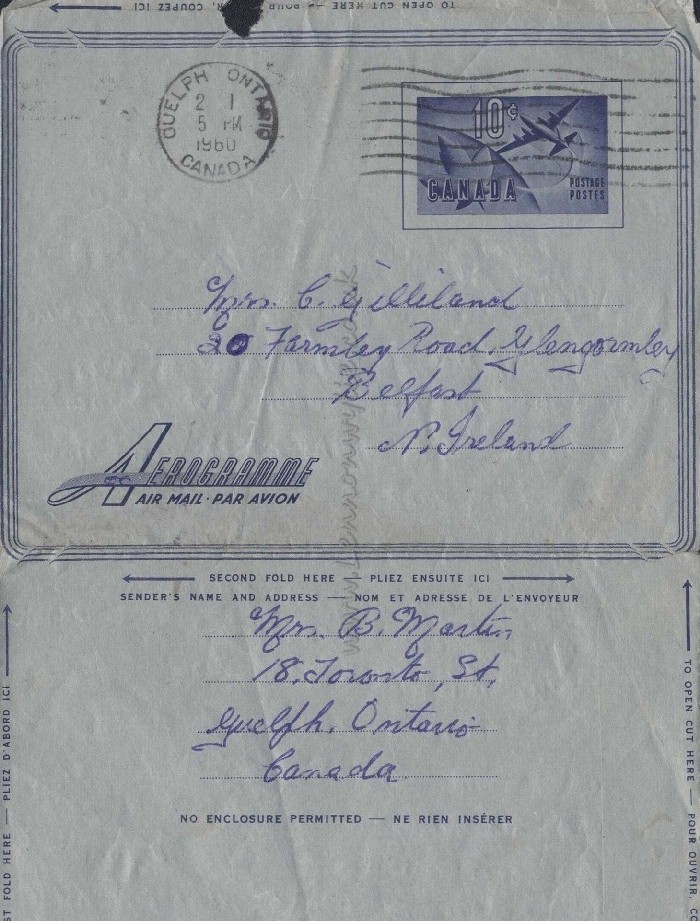 TO OPEN CUT HERE — POUR OUVRIR, COUPEZ ICI
GUELPH ONTARIO
2 I
5 PM
1960
CANADA
10¢
CANADA
POSTAGE
POSTES
Mrs. C. Gilliland
20 Farmley Road, Glengormley
Belfast
N. Ireland
AEROGRAMME
AIR MAIL · PAR AVION
SECOND FOLD HERE | PLIEZ ENSUITE ICI
SENDER'S NAME AND ADDRESS — NOM ET ADRESSE DE L'ENVOYEUR
Mrs. B. Martin
18, Toronto, St,
Guelph, Ontario
Canada
NO ENCLOSURE PERMITTED — NE RIEN INSÉRER
ST FOLD HERE — PLIEZ D'ABORD ICI
TO OPEN CUT HERE — POUR OUVRIR, CO